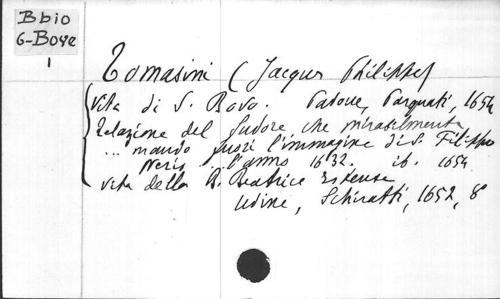 Bbio
6-Boye
1
Tomasini (Jacques Philippe)
Vita di S. Bovo. Padoue, Pasquati, 1654
Relazione del sudore, che mirabilmente
... mando fuori l'immagine di S. Filippo
Neri l'anno 1632. ib. 1654
Vita della B. Beatrice Estense
Udine, Schiratti, 1652, 8